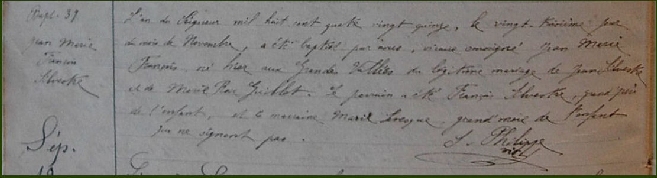 Bapt. 37
Jean Marie
François
Silvestre
L'an du Seigneur mil huit cent quatre vingt quinze, le vingt-troisième jour
du mois de Novembre, a été baptisé par nous, vicaire soussigné Jean Marie
François, né hier aux Grandes Vallées du légitime mariage de Jean Silvestre
et de Marie Rose Guillot. Le parrain a été François Silvestre, grand père
de l'enfant, et la marraine Marie Levesque grand mère de l'enfant
qui ne signent pas.
J. Philippe
vic.
Sép.